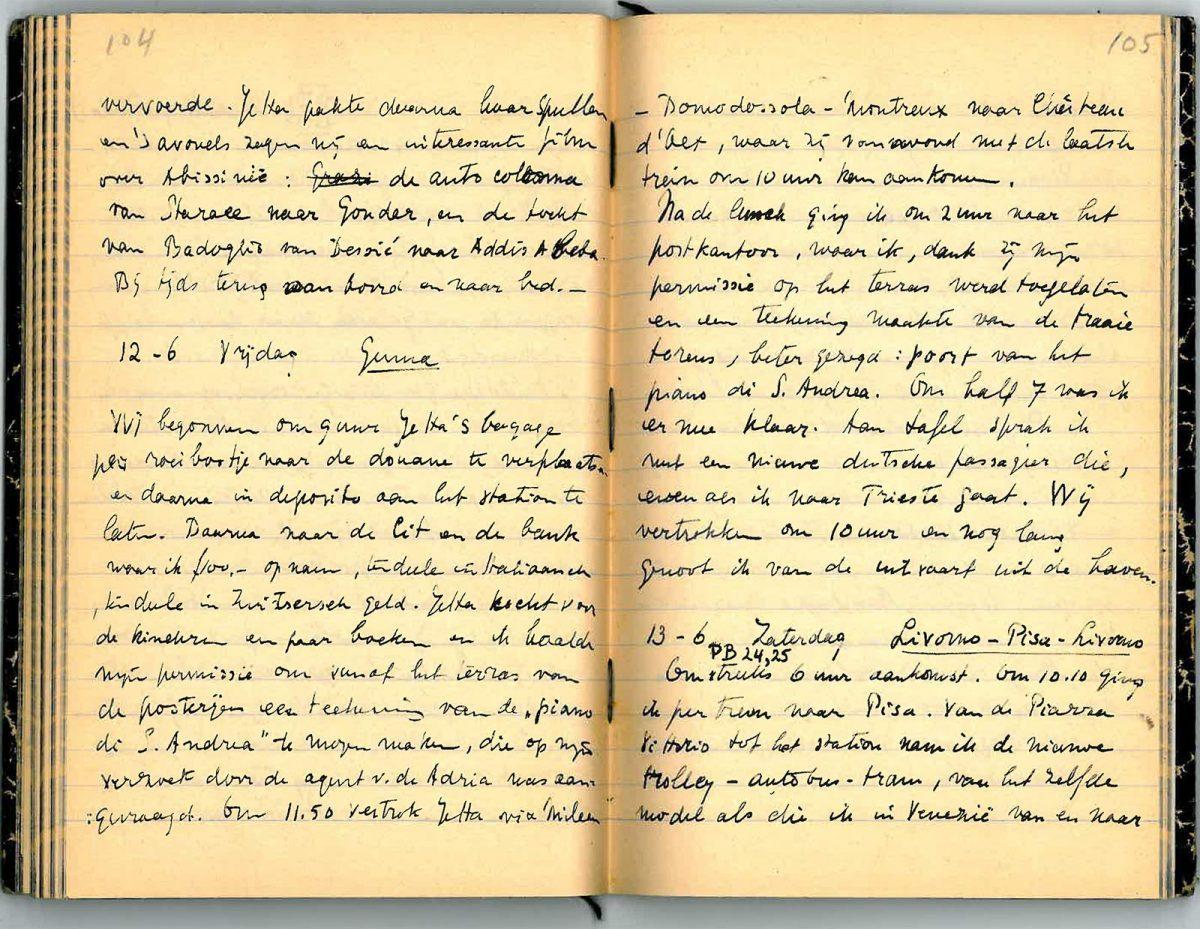 104
vervoerde. Jetta pakte daarna haar spullen
en 's avonds zagen wij een interessante film
over Abissinië: de auto colonna
van Starace naar Gonder, en de tocht
van Badoglio van Dessié naar Addis Abeba.
Bij tijds terug aan boord en naar bed. —
12-6 Vrijdag Genua
Wij begonnen om 9 uur Jetta's bagage
per roeibootje naar de douane te verplaatsen
en daarna in deposito aan het station te
laten. Daarna naar de Cit en de bank
waar ik op nam, ten dele in Italiaansch
, ten dele in Zwitsersch geld. Jetta kocht voor
de kinderen een paar boeken en ik haalde
mijn permissie om vanaf het terras van
de posterijen een teekening van de „piano
di S. Andrea" te mogen maken, die op mijn
verzoek door de agent v. de Adria was aan-
:gevraagd. Om 11.50 vertrok Jetta via Milaan
105
– Domodossola – Montreux naar Château
d'Oex, waar zij van avond met de laatste
trein om 10 uur kan aankomen.
Na de lunch ging ik om 2 uur naar het
postkantoor, waar ik, dank zij mijn
permissie op het terras werd toegelaten
en een teekening maakte van de fraaie
torens, beter gezegd: poort van het
piano di S. Andrea. Om half 7 was ik
er mee klaar. Aan tafel sprak ik
met een nieuwe duitsche passagier die,
even als ik naar Trieste gaat. Wij
vertrokken om 10 uur en nog lang
genoot ik van de uitvaart uit de haven.
13-6 Zaterdag Livorno – Pisa – Livorno
PB 24,25
Omstreeks 6 uur aankomst. Om 10.10 ging
ik per trein naar Pisa. Van de Piazza
Vittorio tot het station nam ik de nieuwe
trolley – autobus – tram, van het zelfde
model als die ik in Venezië van en naar